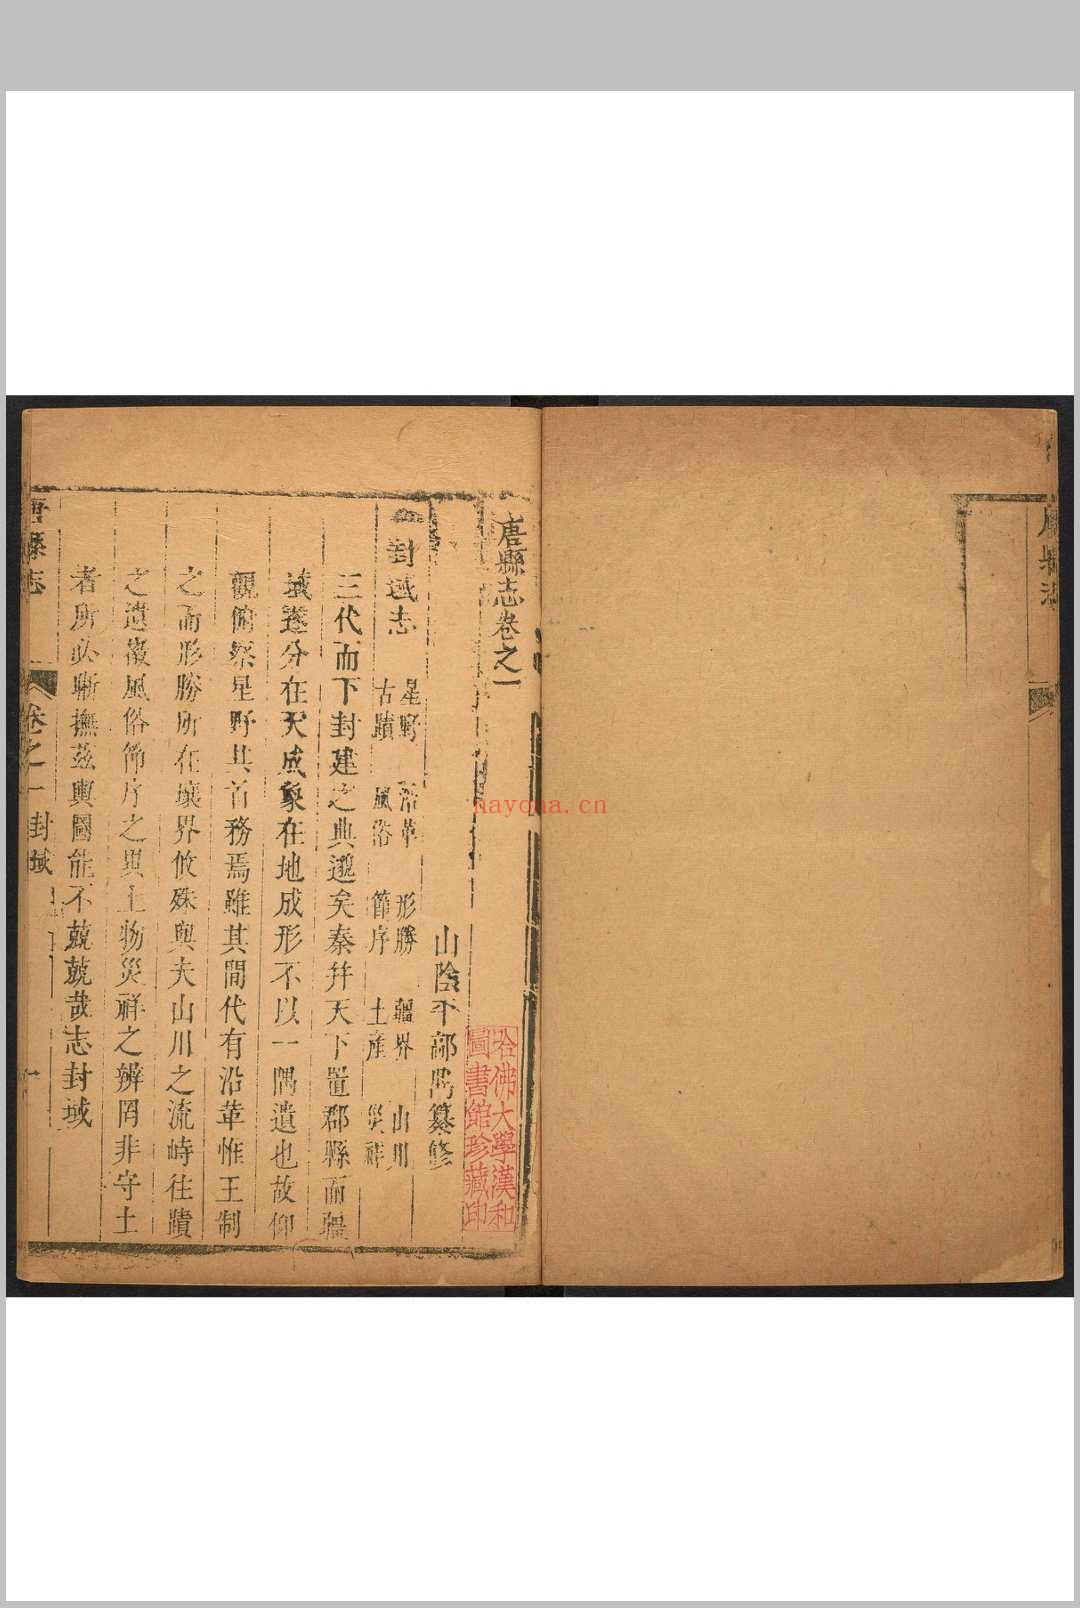 唐縣志
唐縣志卷之一
山陰平郤禼纂修
封域志
星野 沿革 形勝 疆界 山川
古蹟 風俗 節序 土産 災祥
三代而下封建之典邈矣秦幷天下置郡縣而疆
域遂分在天成象在地成形不以一隅遺也故仰
觀俯察星野其首務焉雖其間代有沿革惟王制
之而形勝所在壤界攸殊與夫山川之流峙往蹟
之遺徽風俗節序之異土物災祥之辨罔非守土
者所必斬撫茲輿圖能不兢兢哉志封域
唐縣志 卷之一 封域 一
哈佛大學漢和
圖書館珍藏印
nayona.cn